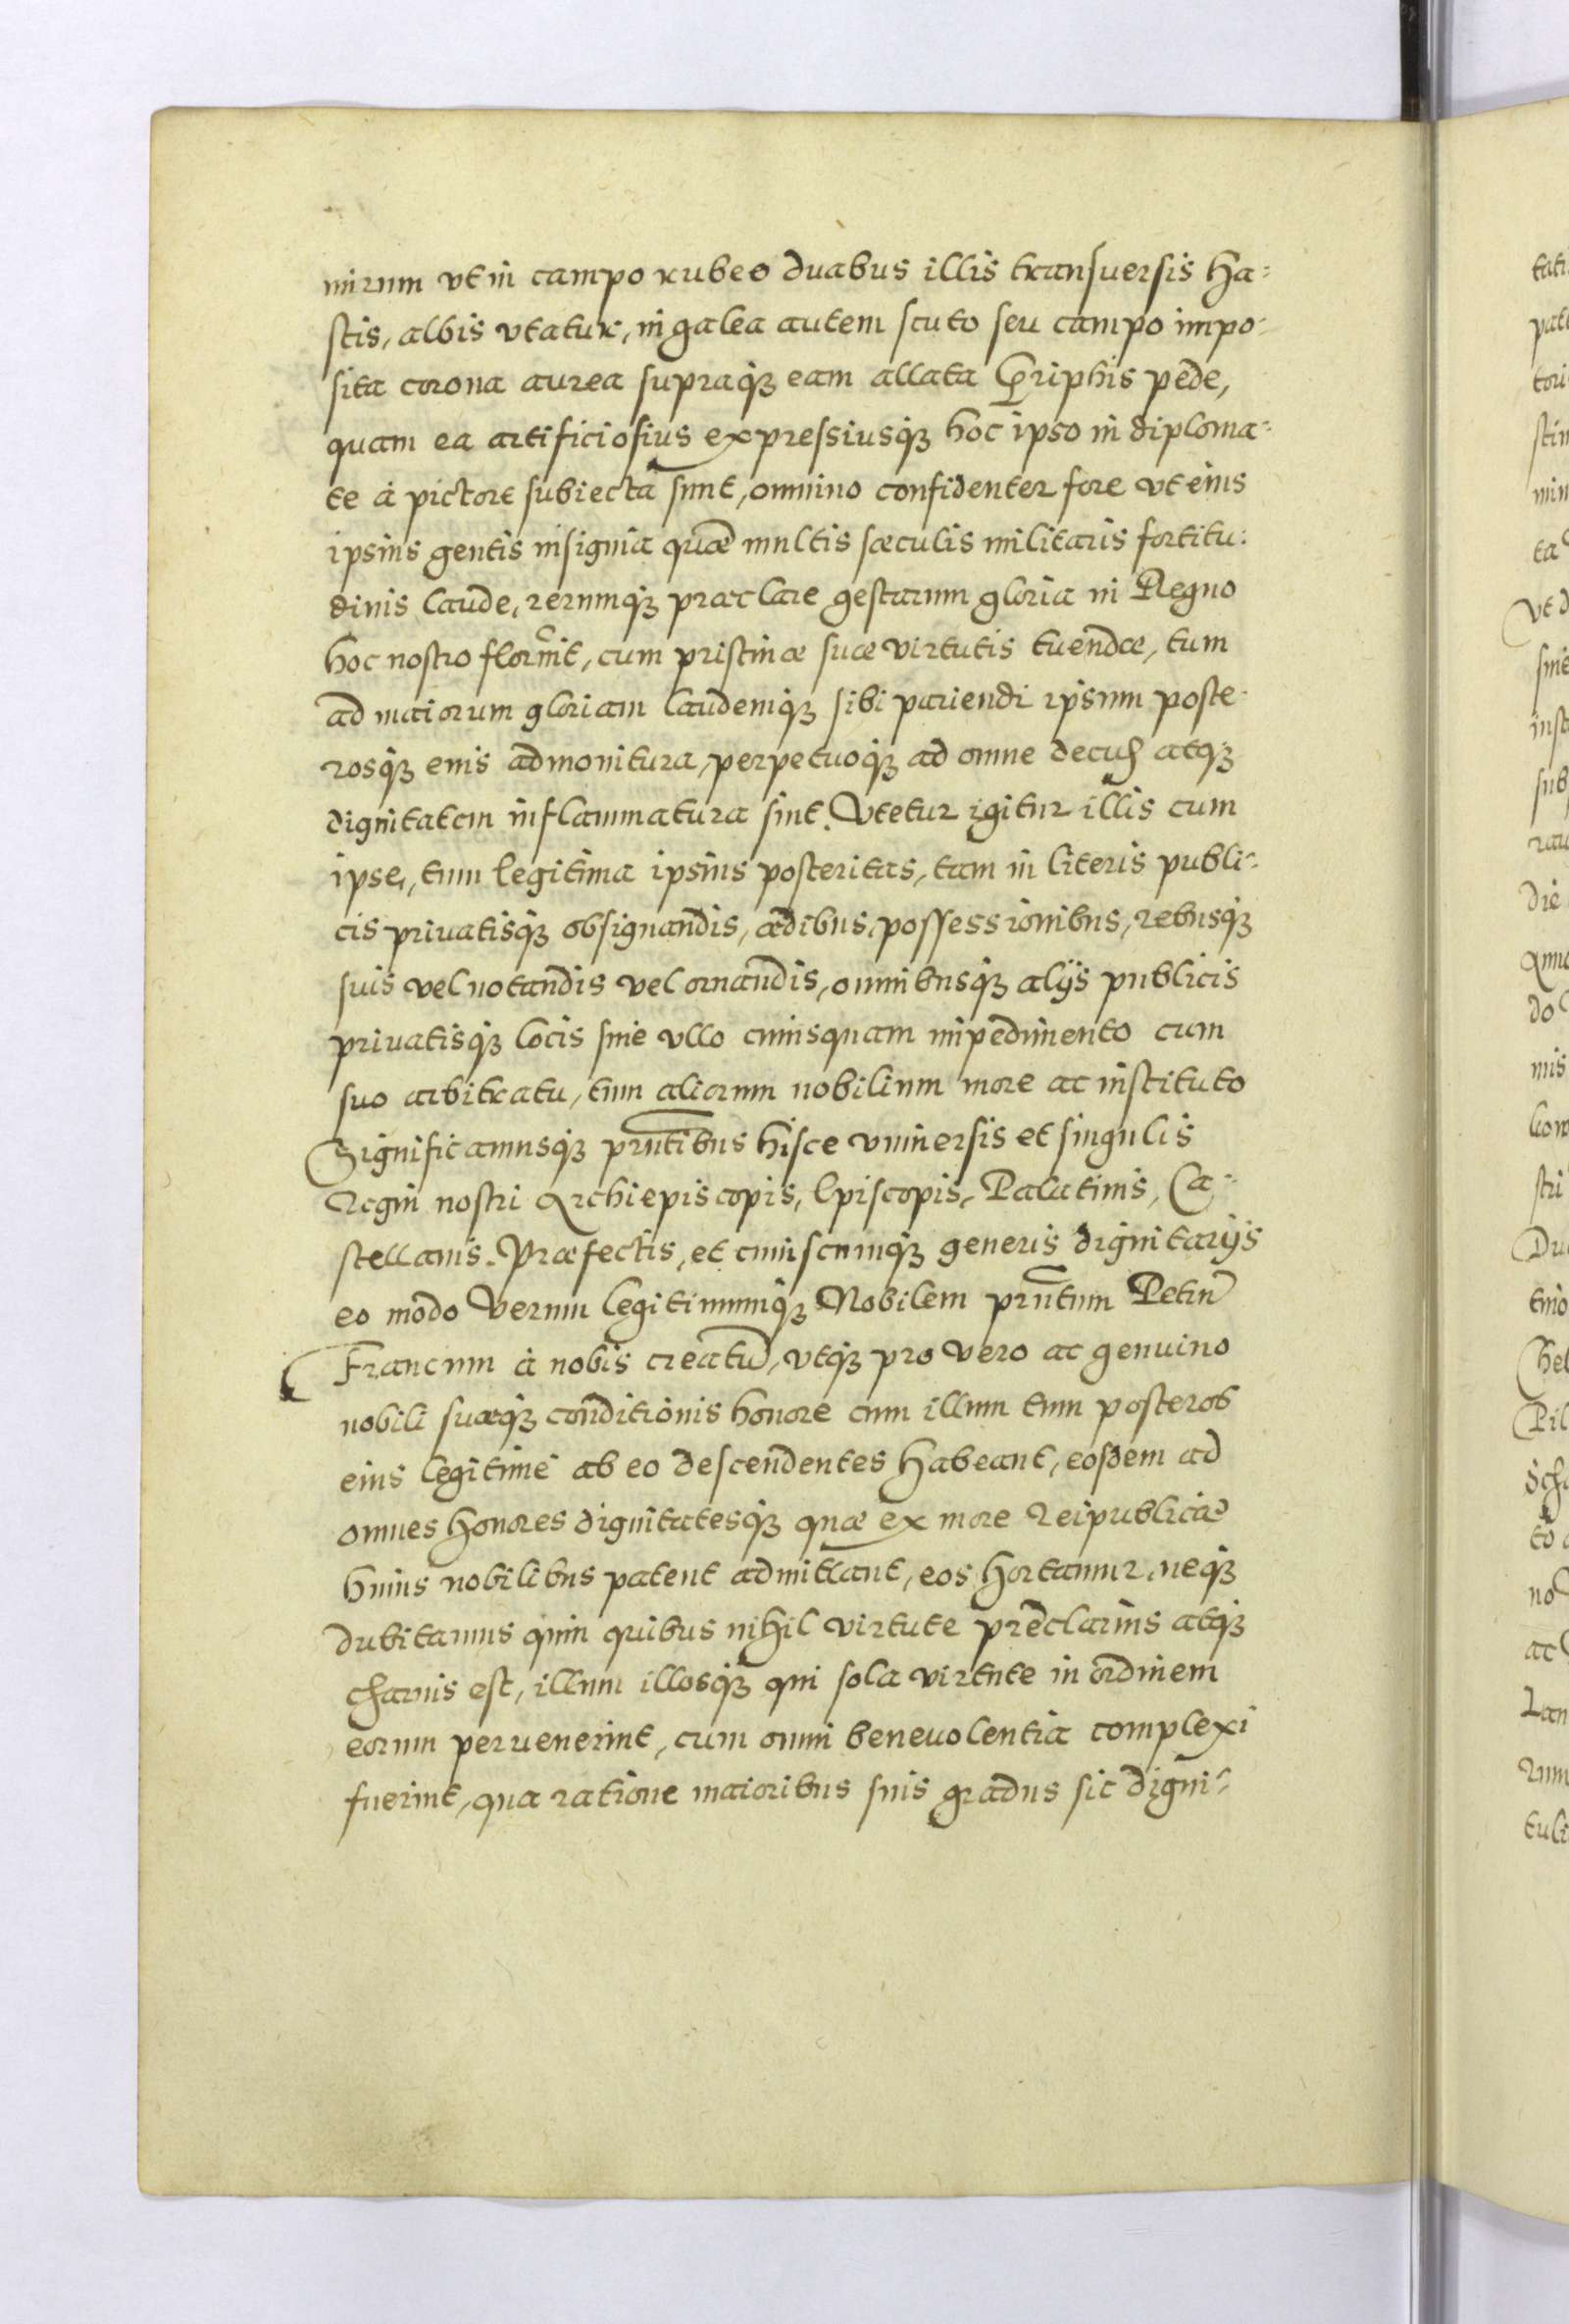 mirum vt in campo rubeo duabus illis transuersis Ha=
stis, albis vtatur, in galea autem scuto seu campo impo-
sita corona aurea supraqȝ eam allata Griphis pede,
quam ea artificiosius expressiusqȝ hoc ipso in diploma=
te à pictore subiecta sunt, omnino confidenter fore vt eius
ipsius gentis insignia quæ multis sæculis militaris fortitu:
dinis laude, rerumqȝ præclare gestarum gloria in Regno
hoc nostro , cum pristinæ suæ virtutis tuendæ, tum
ad maiorum gloriam laudemqȝ sibi pariendi ipsum poste-
rosqȝ eius admonitura, perpetuoqȝ ad omne decus atqȝ
dignitatem inflammatura sint. Vtetur igitur illis cum
ipse, tum legitima ipsius posteritas, tam in literis publi=
cis priuatisqȝ obsignandis, ædibus, possessionibus, rebusqȝ
suis vel notandis vel ornandis, omnibusqȝ alijs publicis
priuatisqȝ locis sine vllo cuiusquam impedimento cum
suo arbitratu, tum aliorum nobilium more ac instituto
Significamusqȝ prñtibus hisce vniuersis et singulis
Regni nostri Archiepiscopis, Episcopis, Palatinis, Ca=
stellanis. Præfectis, et cuiuscunqȝ generis dignitarijs
eo modo verum legitimumqȝ Nobilem prñtum Petrũ
Francum à nobis creatũ, vtqȝ pro vero ac genuino
nobili suæqȝ conditionis honore cum illum tum posteros
eius legitimè ab eo descendentes habeant, eosdem ad
omnes honores dignitatesqȝ quæ ex more Reipublicæ
huius nobilibus patent admittant, eos hortamur, neqȝ
dubitamus quin quibus nihil virtute preclarius atqȝ
charius est, illum illosqȝ qui sola virtute in ordinem
eorum peruenerint, cum omni beneuolentia complexi
fuerint, qua ratione maioribus suis gradus sic digni=